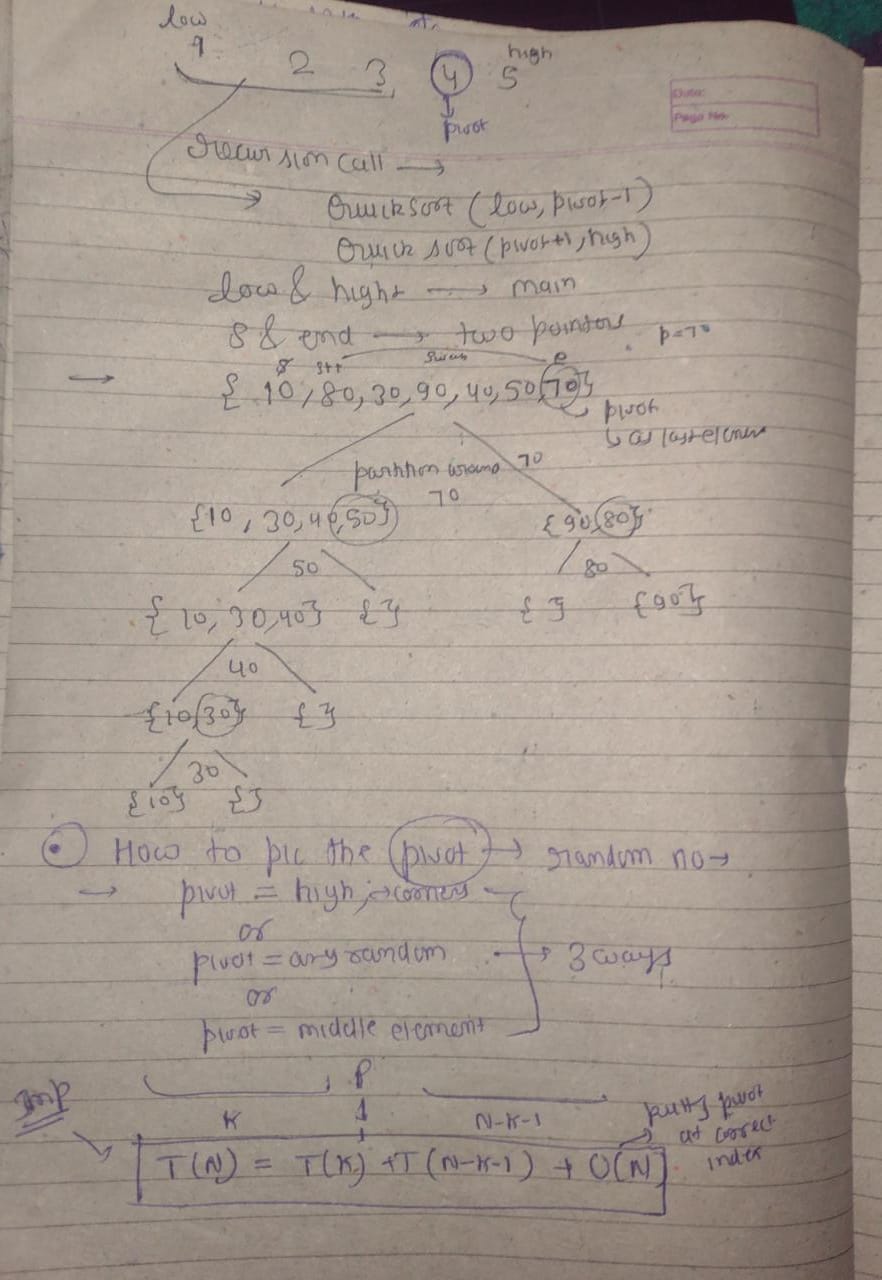 low
1 2 3 4 5 high
pivot
Date:
Page No.
recursion call →
Quicksort (low, pivot-1)
Quick sort (pivot+1, high)
low & high → main
s & end → two pointers p=70
s s++ swap e
→ { 10, 80, 30, 90, 40, 50, 70}
pivot
↳ as last element
partition around 70
70
{10, 30, 40, 50} {90, 80}
50 80
{ 10, 30, 40} { } { } {90}
40
{10, 30} { }
30
{10} { }
How to pic the pivot → random no →
→ pivot = high, → corners
or
pivot = any random → 3 ways
or
pivot = middle element
P
Imp K 1 N-K-1
putting pivot
at correct
index
T(N) = T(K) + T(N-K-1) + O(N)